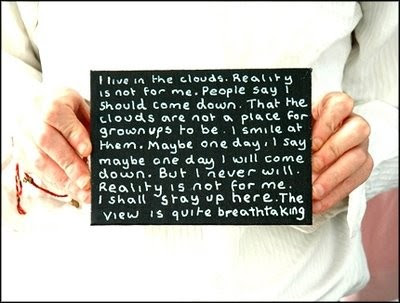 I live in the clouds. Reality
is not for me. People say I
should come down. That the
clouds are not a place for
grownups to be. I smile at
them. Maybe one day, I say
maybe one day I will come
down. But I never will.
Reality is not for me.
I shall stay up here. The
view is quite breathtaking